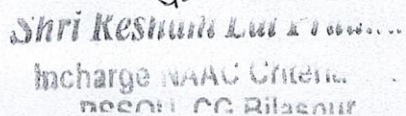 Shri Keshum Lal
Incharge NAAC Criteria
PSSOU, CG Bilaspur